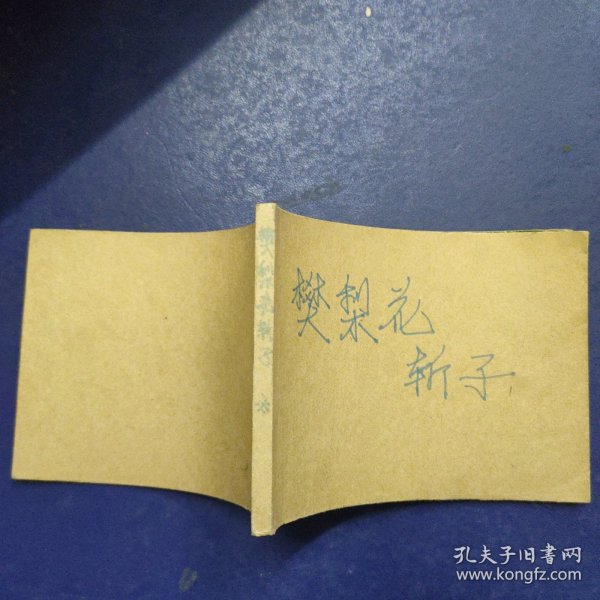 樊梨花
斩子
樊梨花斩子
孔夫子旧書网
www.kongfz.com